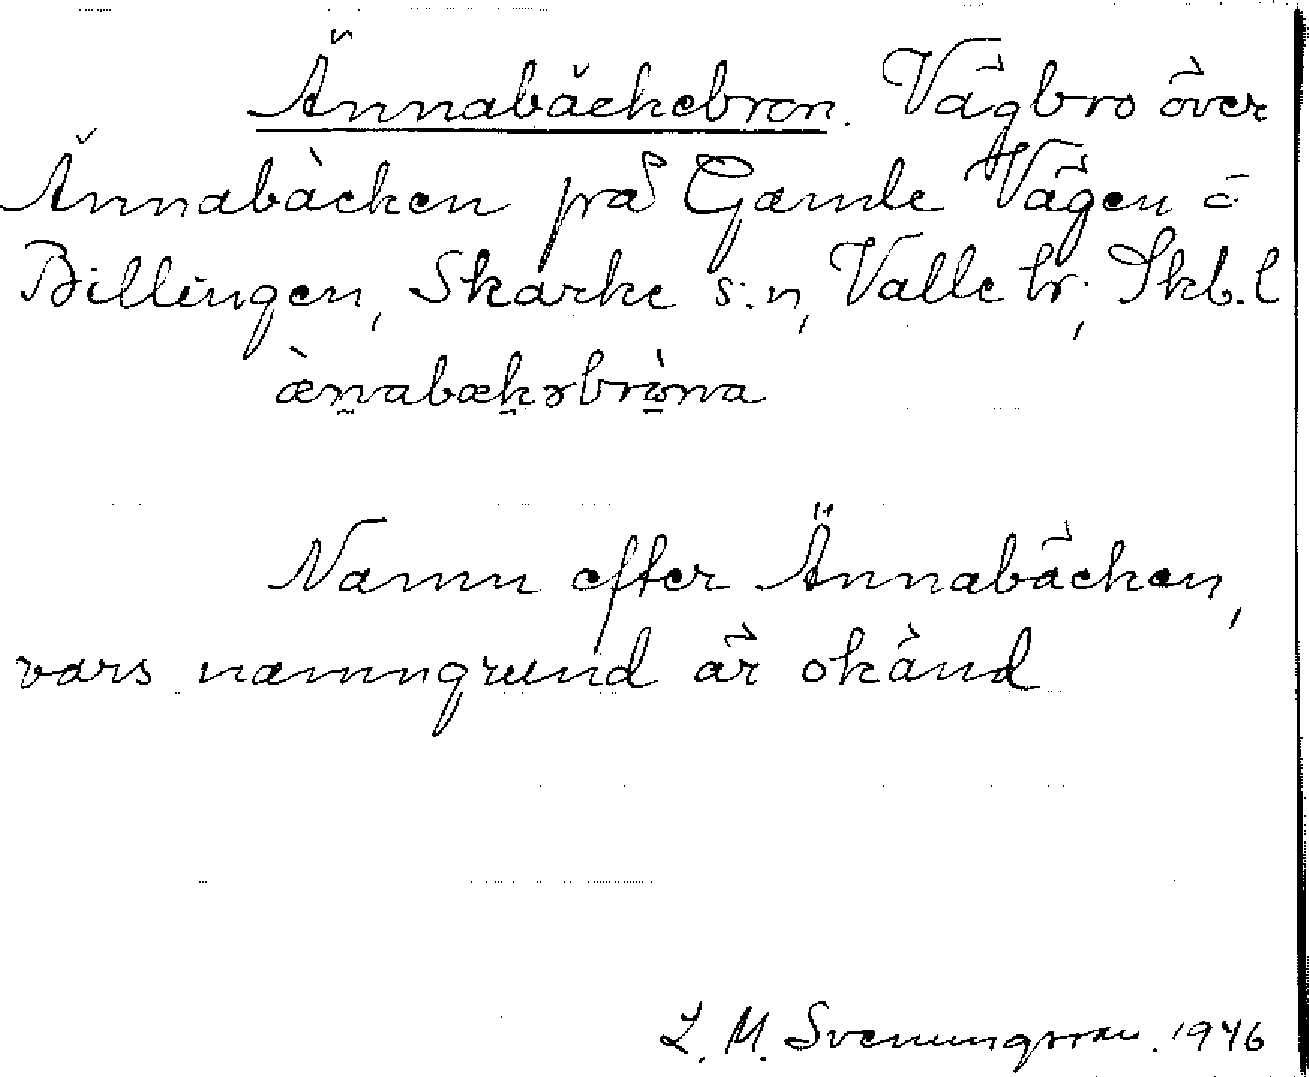 Ännabäckebron. Vägbro över
Ännabäcken på Gamle Vägen å
Billingen, Skärke s:n, Valle hr, Skb.l
ænabækəbròna
Namn efter Ännabäcken,
vars namngrund är okänd
L. M. Svenungsson. 1946